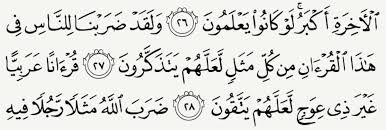 ٱلۡأٓخِرَةِ أَكۡبَرُۚ لَوۡ كَانُواْ يَعۡلَمُونَ ٢٦ وَلَقَدۡ ضَرَبۡنَا لِلنَّاسِ فِي
هَٰذَا ٱلۡقُرۡءَانِ مِن كُلِّ مَثَلٖ لَّعَلَّهُمۡ يَتَذَكَّرُونَ ٢٧ قُرۡءَانًا عَرَبِيًّا
غَيۡرَ ذِي عِوَجٖ لَّعَلَّهُمۡ يَتَّقُونَ ٢٨ ضَرَبَ ٱللَّهُ مَثَلٗا رَّجُلٗا فِيهِ